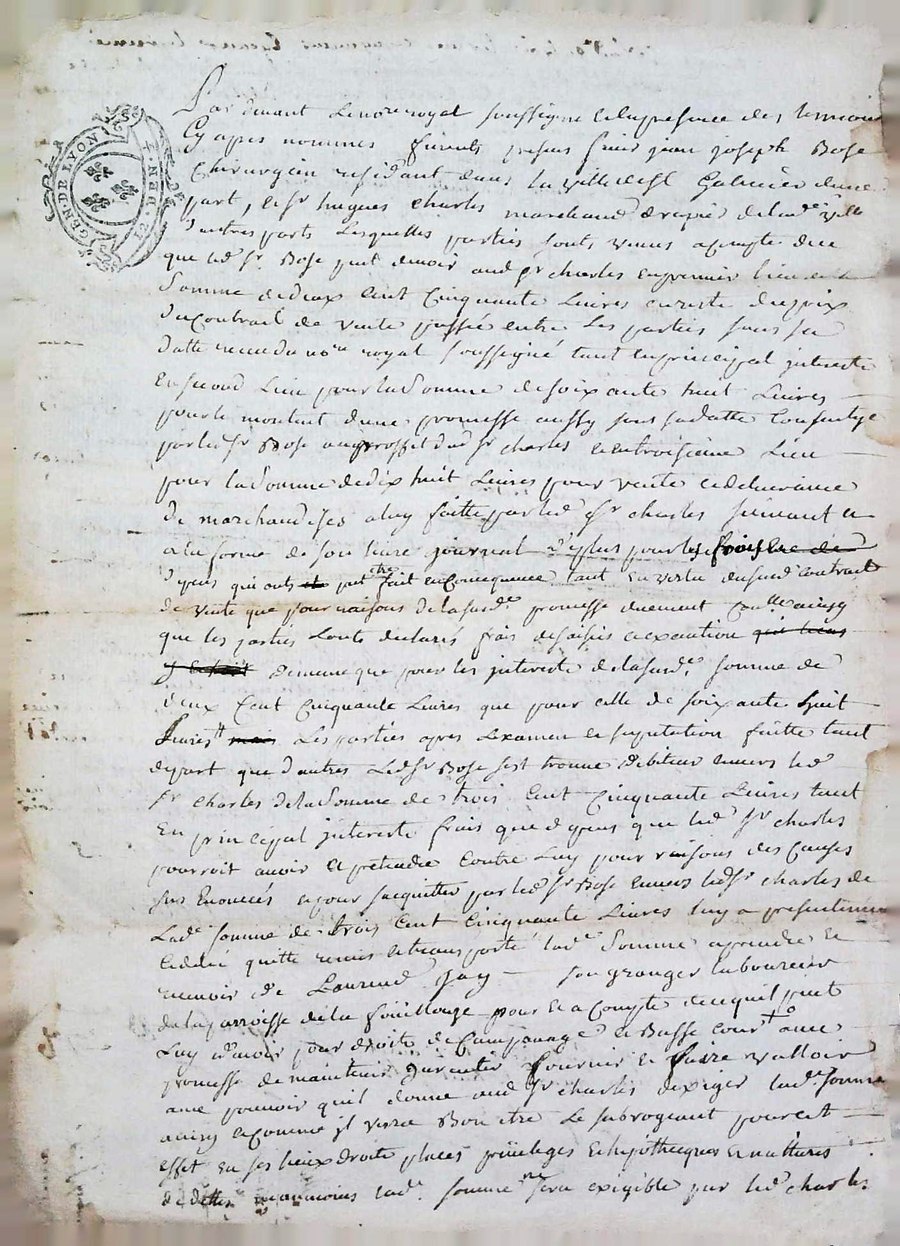 GEN. DE LYON
Par devant Le no.re royal soussigné et la presence des temoins
Cy apres nommés furent presens sieur jean joseph Bose
Chirurgien residant dans la ville de S.t Galmier d'une
part, et s.r hugues charles marchand drapié de lad.e ville
d'autres parts Lesquelles parties sonts venus a compte de ce
que led s.r Bose peut devoir aud s.r charles en premier lieu de la
Somme de deux Cent Cinquante Livres en reste du prix
du Contrait de vente passée entre Les parties sous sa
datte receu du no.re royal soussigné tant en principal jnterests
En second Lieu pour la Somme de soixante huit Livres
pour le montant d'une promesse aussy sous sa datte Consentye
par led s.r Bose au proffit dud s.r charles et en troisieme Lieu
pour la Somme de dix huit Livres pour vente et delivrance
De marchandises a luy faitte par led s.r charles suivant et
a la forme de son livre journal d'plus pour les frois
d'pens qui onts peut etre fait en Consequence tant en vertu du susd contrait
de vente que pour raisons de la susd.e promesse duement ainsy
que les parties Lonts declarés frais de saisis et execution
de meme que pour les jnterests de la susd.e somme de
deux Cent Cinquante Livres que pour celle de soixante huit
Livres Les parties apres L'examen et suputation faitte tant
de part que d'autres Led s.r Bose s'est trouvé debiteur envers led
s.r charles de la Somme de trois Cent Cinquante Livres tant
En principal jnterests frais que depens que led s.r charles
pourroit avoir et pretendre Contre Luy pour raisons des Causes
sus Enoncés et pour s'acquitter par led s.r Bose envers led s.r charles de
Lad.e somme de trois Cent Cinquante Livres luy a presentement
Ceddé quitte remis et transporté lad.e Somme a prendre et
recevoir de Laurend Jay son granger laboureur
de la parroisse de la foüillouze pour et a Compte de ce quil peut
Luy devoir pour droits de et Basse Cour + avec
promesse de maintenir garentir fournir et faire valloir
avec pouvoir quil donne aud s.r charles dexiger lad.e somme
ainsy et Comme jl verra Bon etre Le subrogeant pour cet
effet En ses Lieux droits places privileges et hipotheques
de dettes neanmoins lad.e somme ne sera exigible par led s.r charles